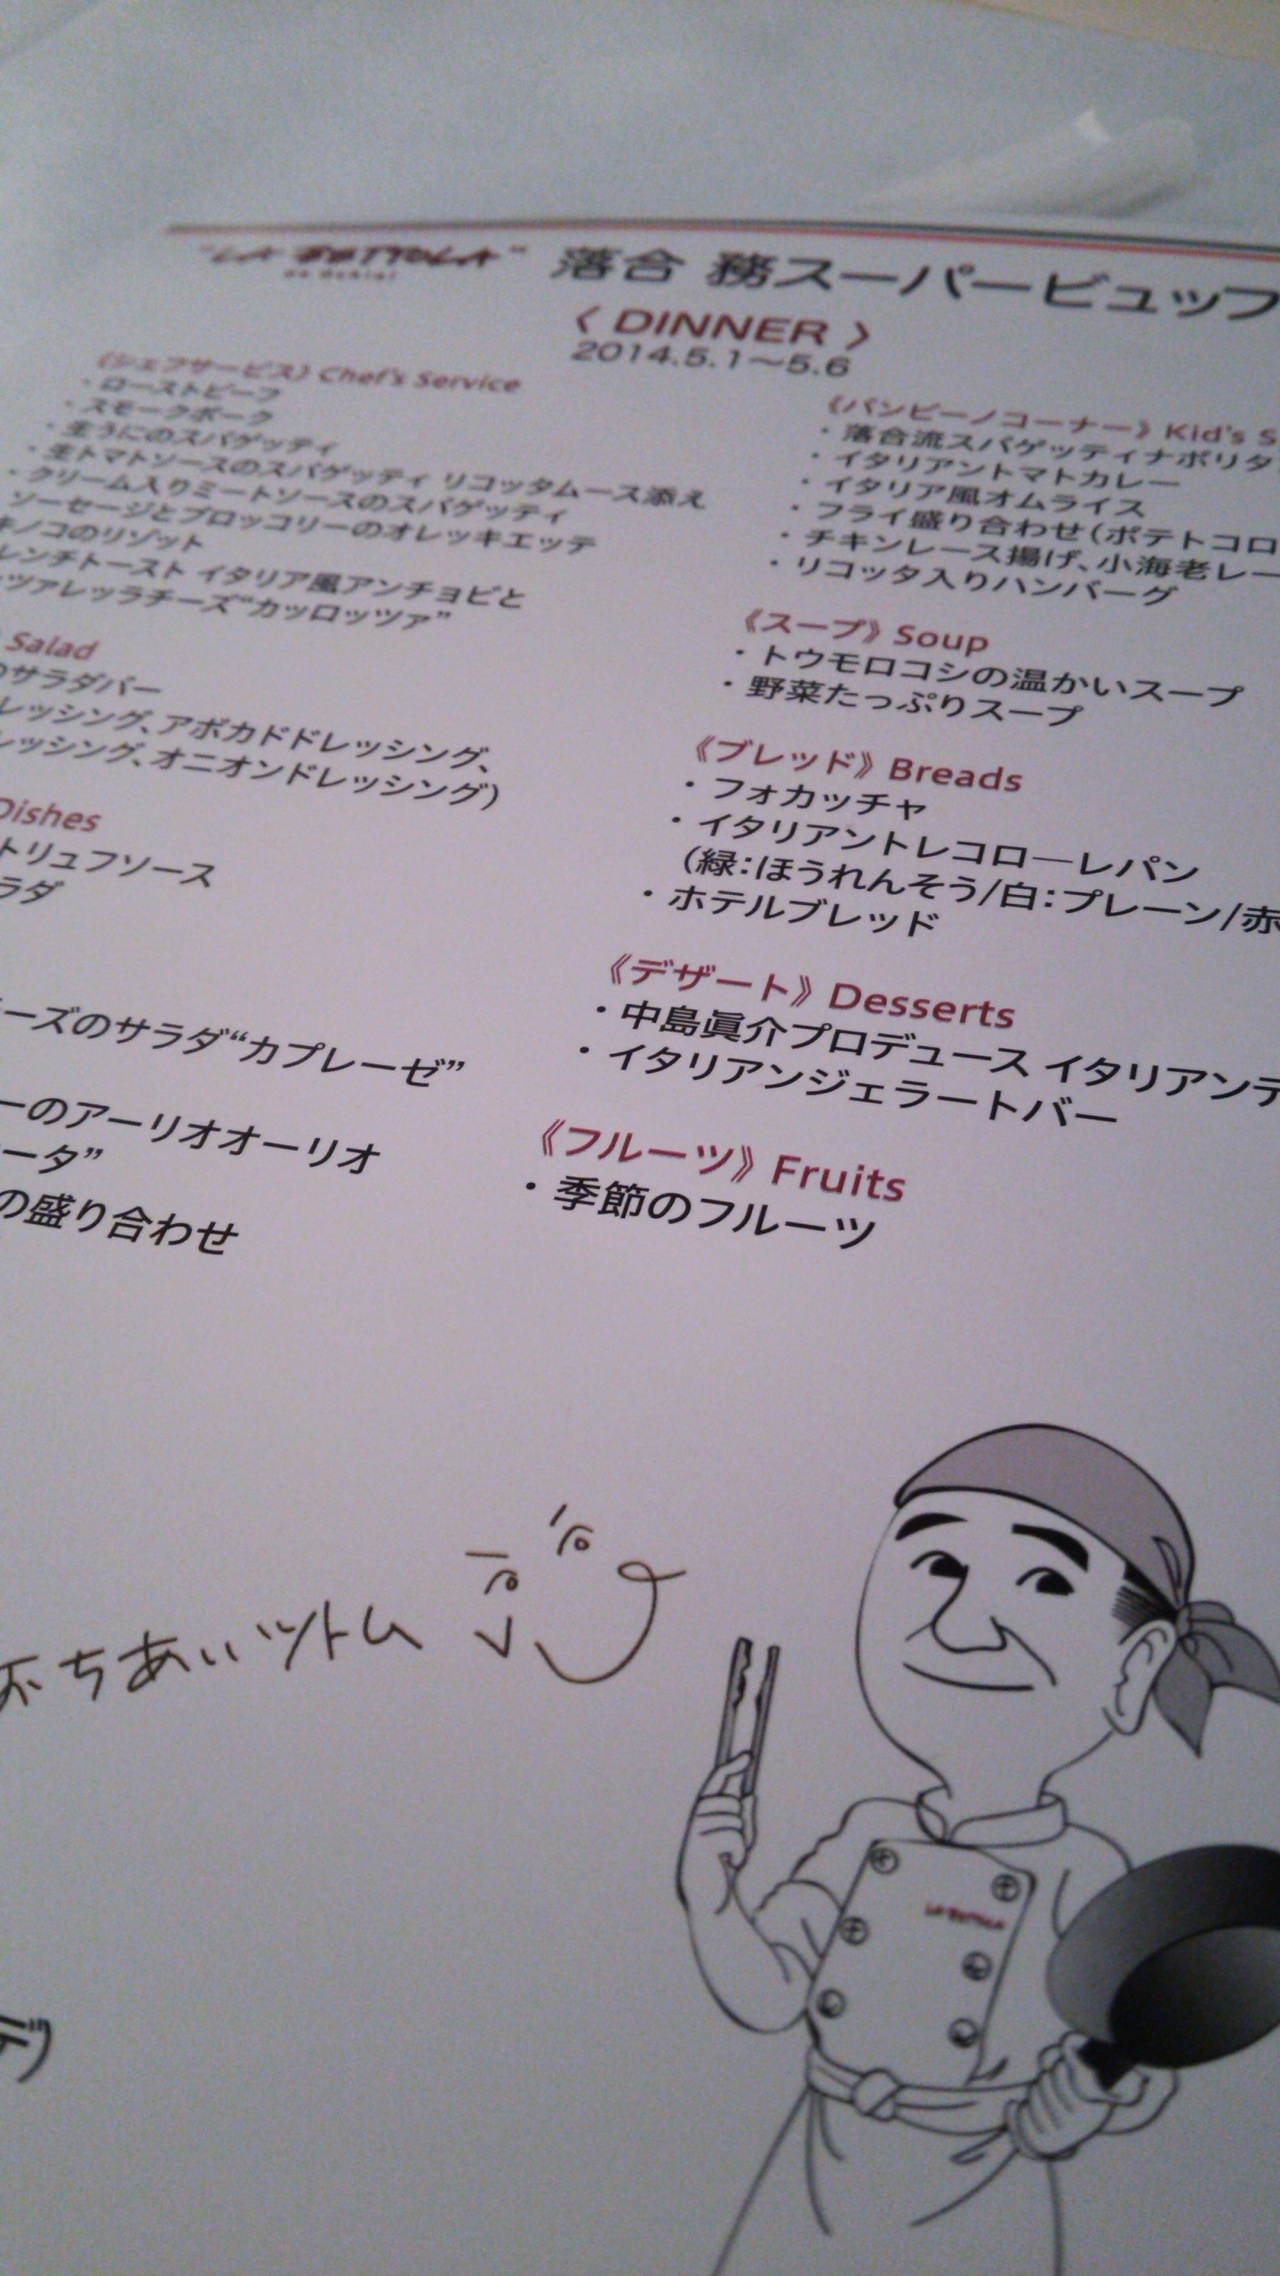 "LA BETTOLA"
da Ochiai
落合 務スーパービュッフ
〈 DINNER 〉
2014.5.1〜5.6
《シェフサービス》Chef's Service
・ローストビーフ
・スモークポーク
・生うにのスパゲッティ
・生トマトソースのスパゲッティ リコッタムース添え
・クリーム入りミートソースのスパゲッティ
ソーセージとブロッコリーのオレッキエッテ
キノコのリゾット
レンチトースト イタリア風アンチョビと
ッツアレッラチーズ“カッロッツァ”
Salad
のサラダバー
レッシング、アボカドドレッシング、
レッシング、オニオンドレッシング）
Dishes
トリュフソース
ラダ
ーズのサラダ“カプレーゼ”
ーのアーリオオーリオ
ータ”
の盛り合わせ
《バンビーノコーナー》Kid's S
・落合流スパゲッティナポリタ
・イタリアントマトカレー
・イタリア風オムライス
・フライ盛り合わせ（ポテトコロ
・チキンレース揚げ、小海老レー
・リコッタ入りハンバーグ
《スープ》Soup
・トウモロコシの温かいスープ
・野菜たっぷりスープ
《ブレッド》Breads
・フォカッチャ
・イタリアントレコローレパン
（緑：ほうれんそう/白：プレーン/赤
・ホテルブレッド
《デザート》Desserts
・中島眞介プロデュース イタリアンデ
・イタリアンジェラートバー
《フルーツ》Fruits
・季節のフルーツ
おちあいツトム
LA BETTOLA
デ)